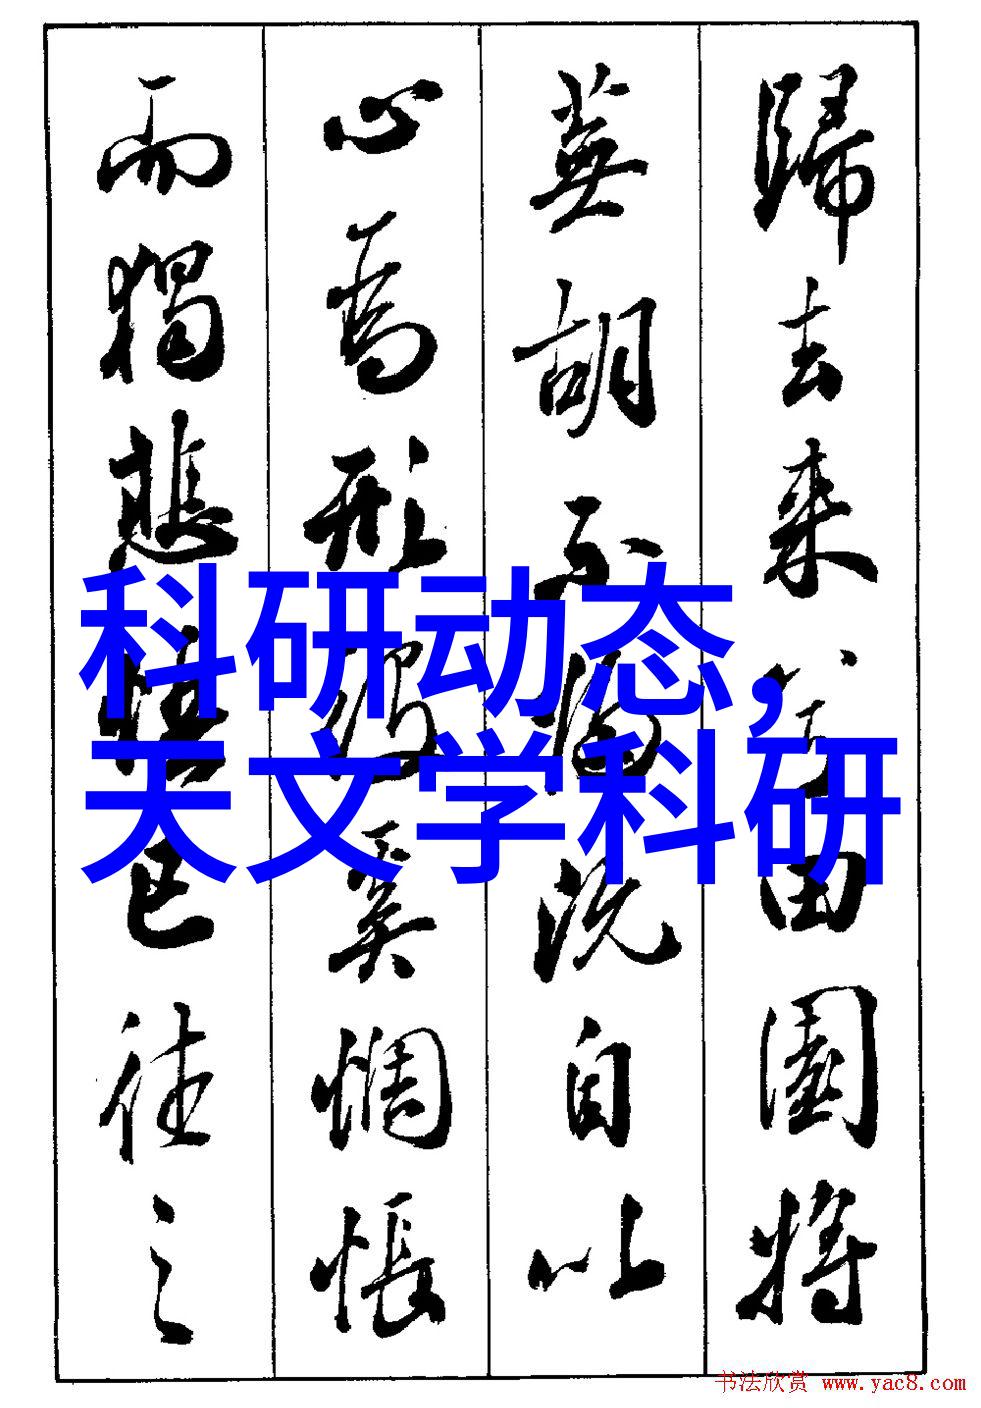 歸去来兮田園將
蕪胡不歸既自以
心為形役奚惆悵
而獨悲悟已往之
科研动态，
天文学科研
书法欣赏 www.yac8.com